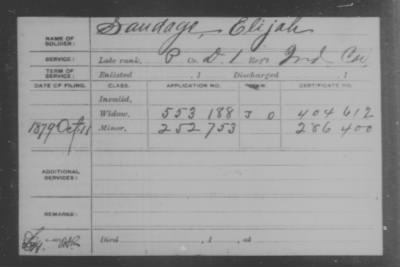 NAME OF SOLDIER: Sandage, Elijah
SERVICE: Late rank, P Co. D. 1 Reg't Ind Cav
TERM OF SERVICE: Enlisted , 1 Discharged , 1
DATE OF FILING. CLASS. APPLICATION NO. CERTIFICATE NO.
Invalid,
Widow, 553 188 J O 404 612
1879 Oct 11 Minor, 252 753 286 400
ADDITIONAL SERVICES:
REMARKS:
Died , 1 , at